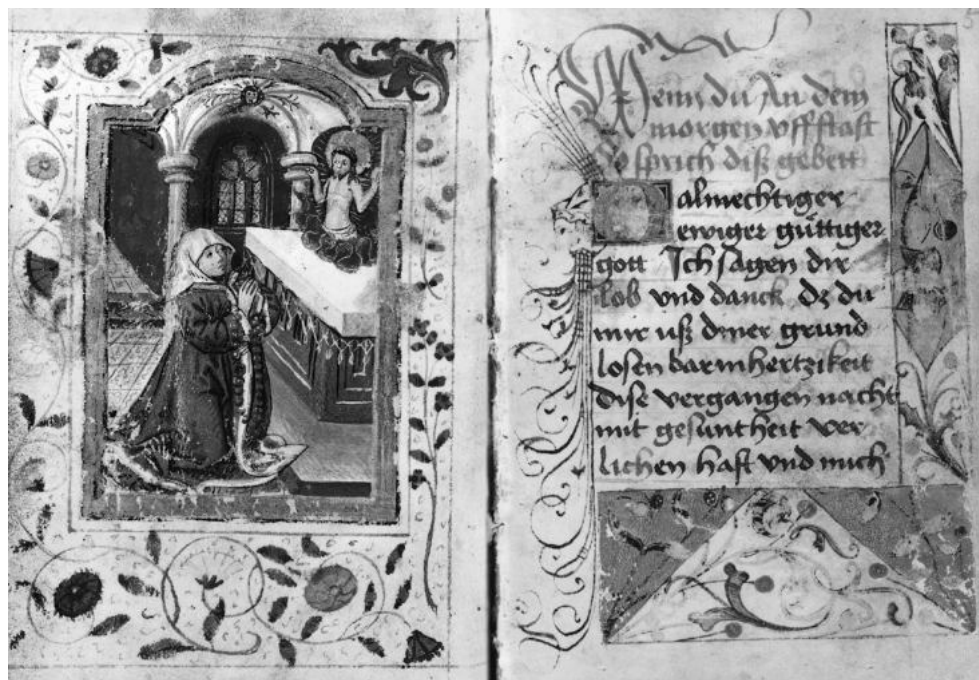 Wenn du An dem
morgen vfftast
So sprich disz gebett
almechtiger
ewiger güttiger
gott Ich sagen dir
lob vnd danck dz du
mir usz diner grund
losen barmhertzikeit
dise vergangen nacht
mit gesuntheit ver
lichen hast vnd mich